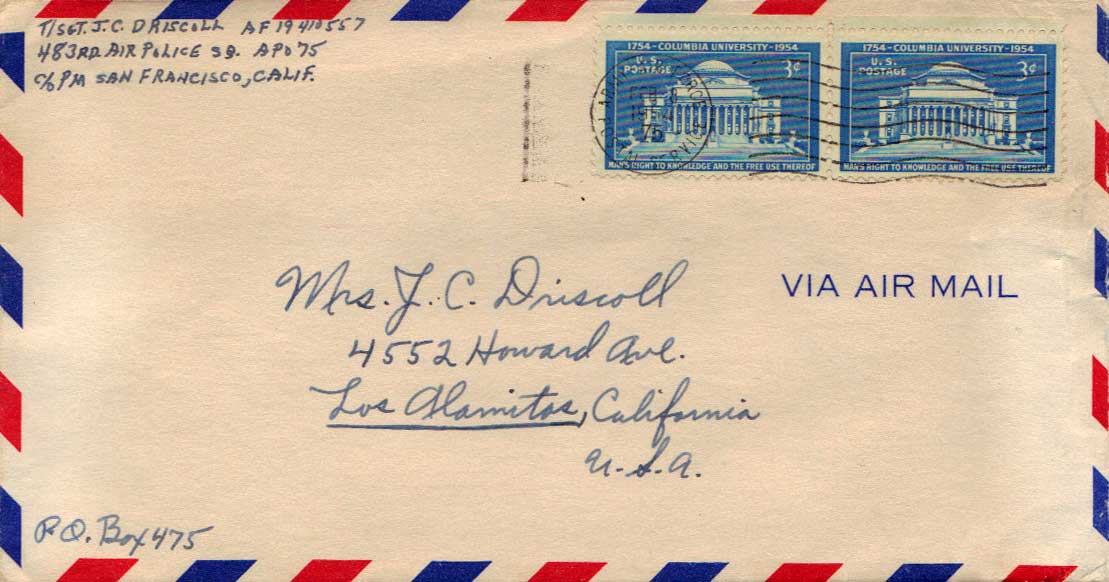 T/SGT. J. C. DRISCOLL AF 19410557
483RD AIR POLICE SQ. APO 75
C/O PM SAN FRANCISCO, CALIF.
1754-COLUMBIA UNIVERSITY-1954
U.S. POSTAGE
3¢
MAN'S RIGHT TO KNOWLEDGE AND THE FREE USE THEREOF
1754-COLUMBIA UNIVERSITY-1954
U.S. POSTAGE
3¢
MAN'S RIGHT TO KNOWLEDGE AND THE FREE USE THEREOF
75
SERVICE
VIA AIR MAIL
Mrs. J. C. Driscoll
4552 Howard Ave.
Los Alamitos, California
U.S.A.
P.O. Box 475